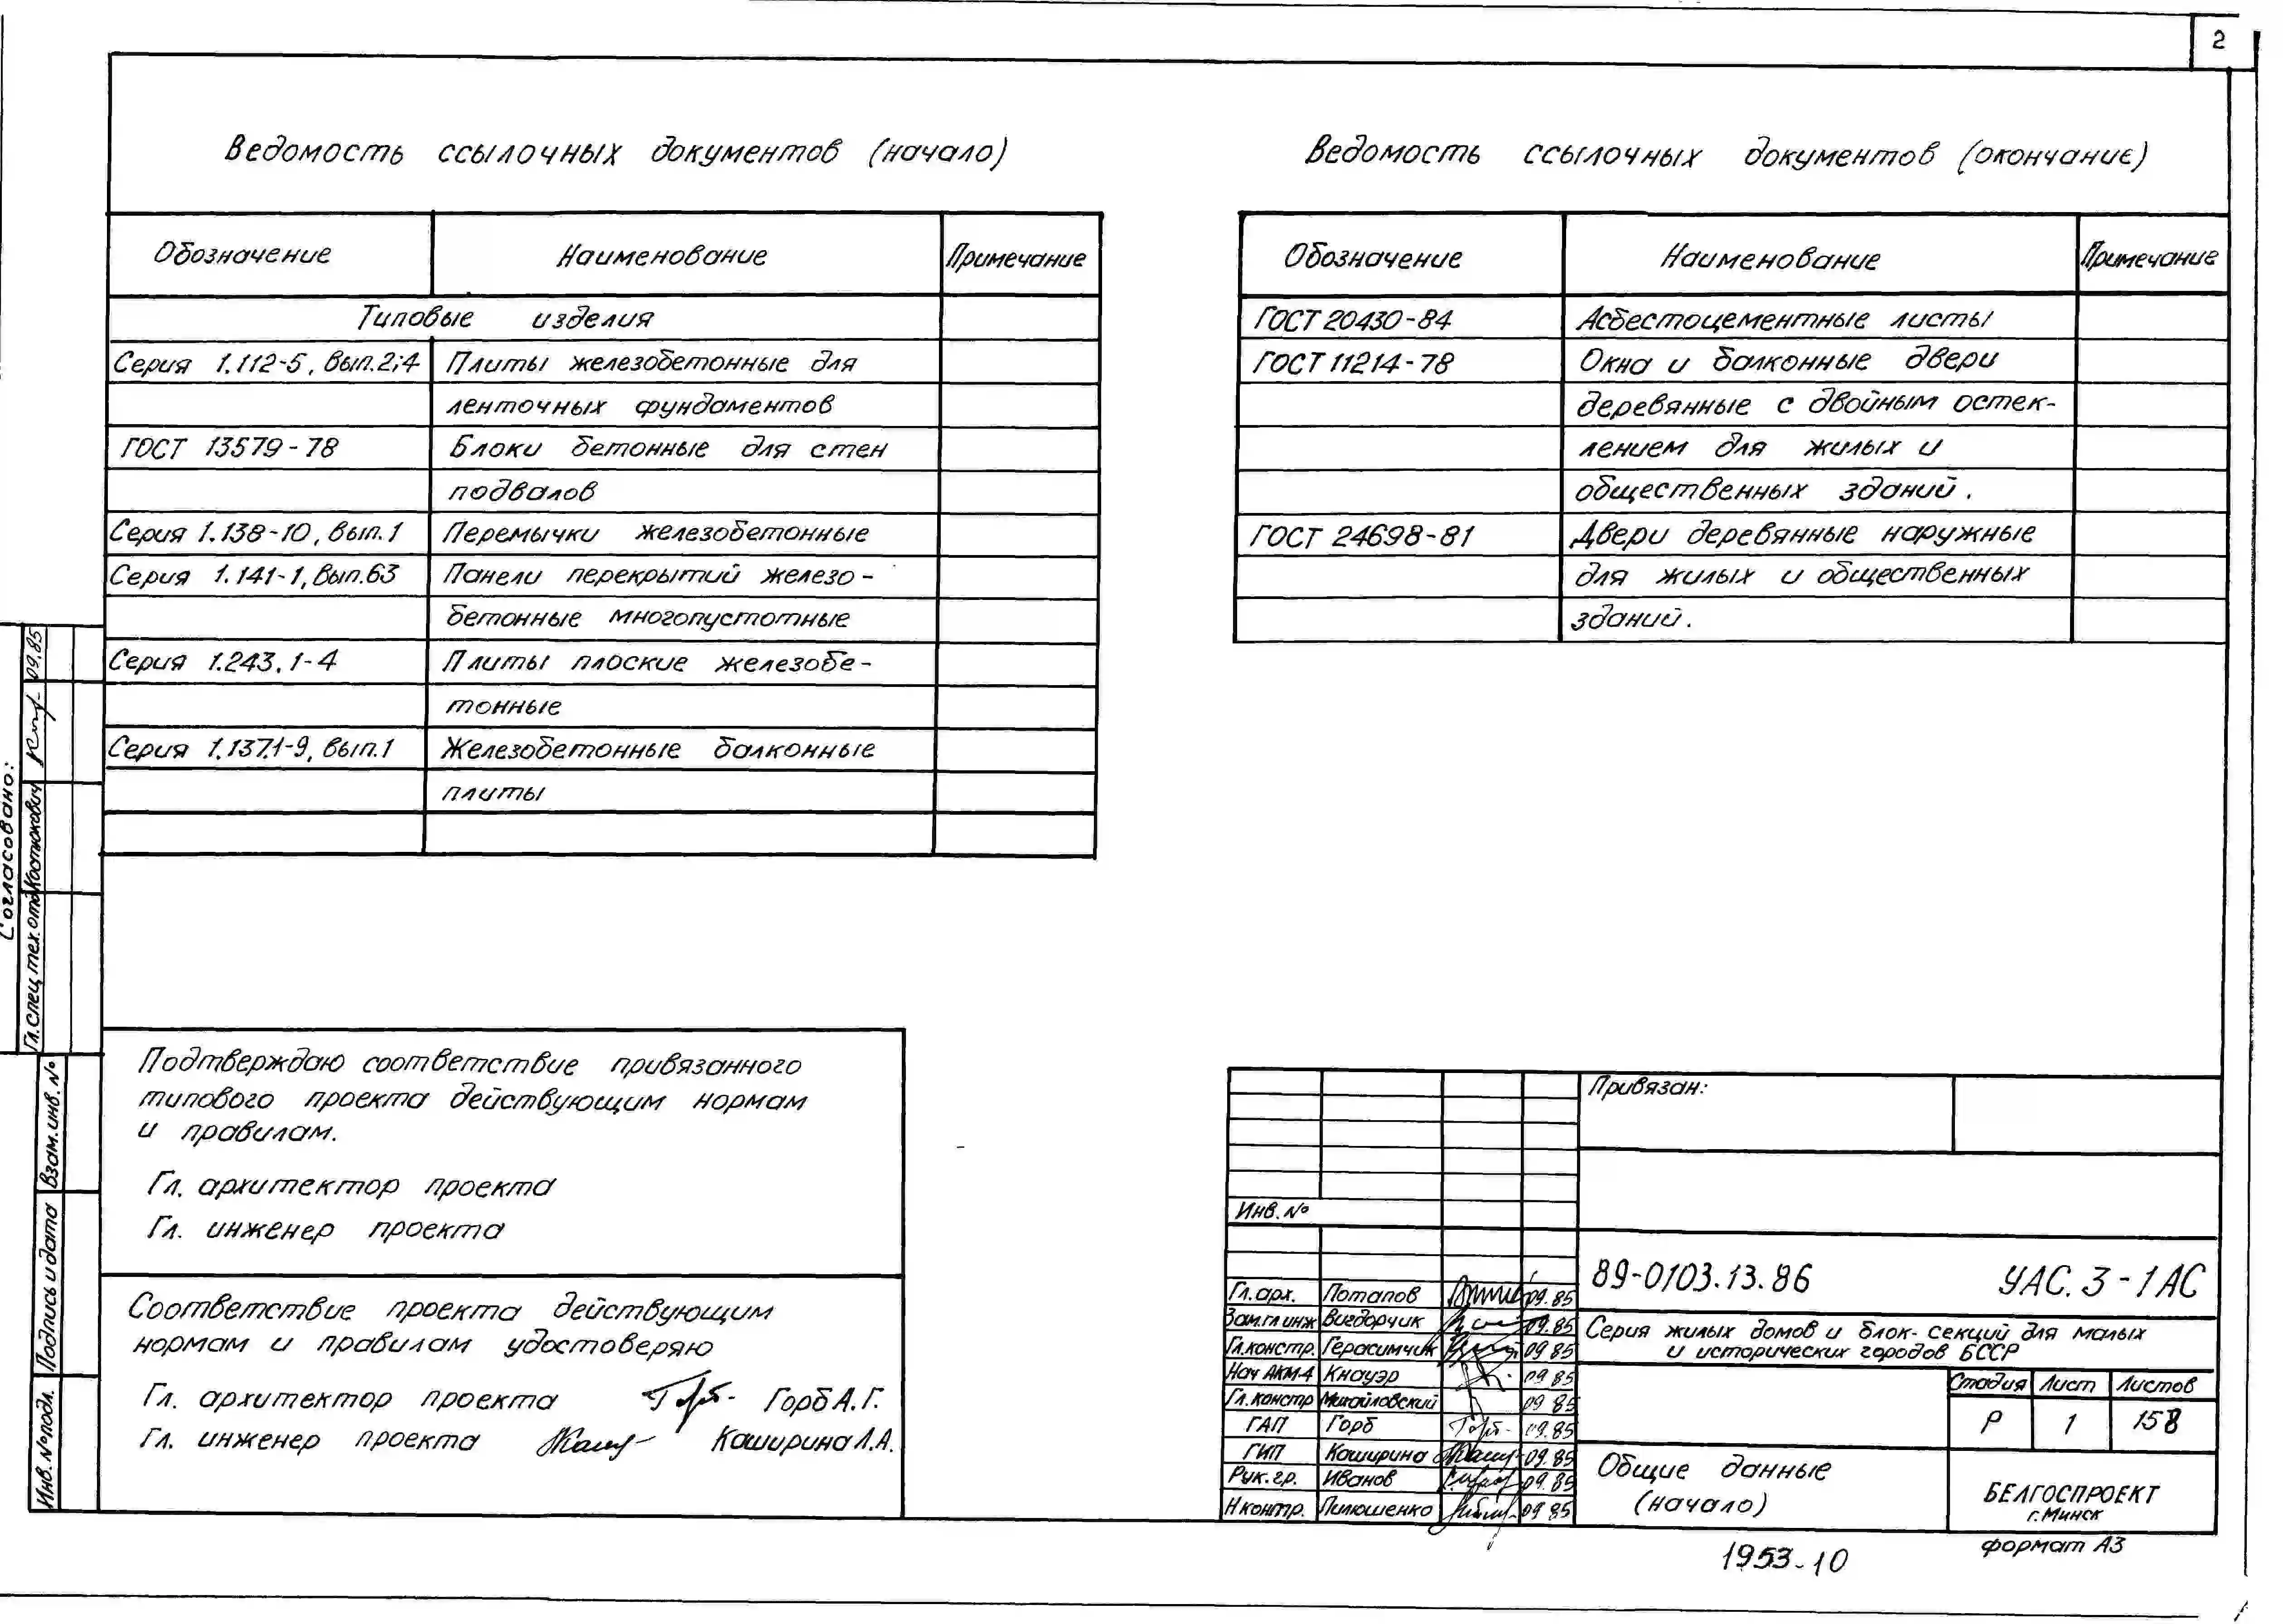 2
Ведомость ссылочных документов (начало)
Обозначение Наименование Примечание
Типовые изделия
Серия 1.112-5, вып.2;4 Плиты железобетонные для
ленточных фундаментов
ГОСТ 13579-78 Блоки бетонные для стен
подвалов
Серия 1.138-10, вып.1 Перемычки железобетонные
Серия 1.141-1, вып.63 Панели перекрытий железо-
бетонные многопустотные
Серия 1.243.1-4 Плиты плоские железобе-
тонные
Серия 1.137.1-9, вып.1 Железобетонные балконные
плиты
Ведомость ссылочных документов (окончание)
Обозначение Наименование Примечание
ГОСТ 20430-84 Асбестоцементные листы
ГОСТ 11214-78 Окна и балконные двери
деревянные с двойным остек-
лением для жилых и
общественных зданий.
ГОСТ 24698-81 Двери деревянные наружные
для жилых и общественных
зданий.
Согласовано:
Гл.спец тех.отд. 09.85
Взам.инв.№
Подпись и дата
Инв.№подл.
Подтверждаю соответствие привязанного
типового проекта действующим нормам
и правилам.
Гл. архитектор проекта
Гл. инженер проекта
Соответствие проекта действующим
нормам и правилам удостоверяю
Гл. архитектор проекта Горб А.Г.
Гл. инженер проекта Каширина Л.А.
Привязан:
Инв.№
Гл.арх. Потапов 09.85
Зам.гл инж Вигдорчик 09.85
Гл.констр. Герасимчик 09 85
Нач АКМ-4 Кнауэр 09 85
Гл.констр Михайловский 09 85
ГАП Горб 09.85
ГИП Каширина 09.85
Рук.гр. Иванов 09.85
Н контр. Пилюшенко 09 85
89-0103.13.86 УАС.3-1АС
Серия жилых домов и блок-секций для малых
и исторических городов БССР
Стадия Лист Листов
Р 1 158
Общие данные
(начало)
БЕЛГОСПРОЕКТ
г.Минск
1953-10
формат А3